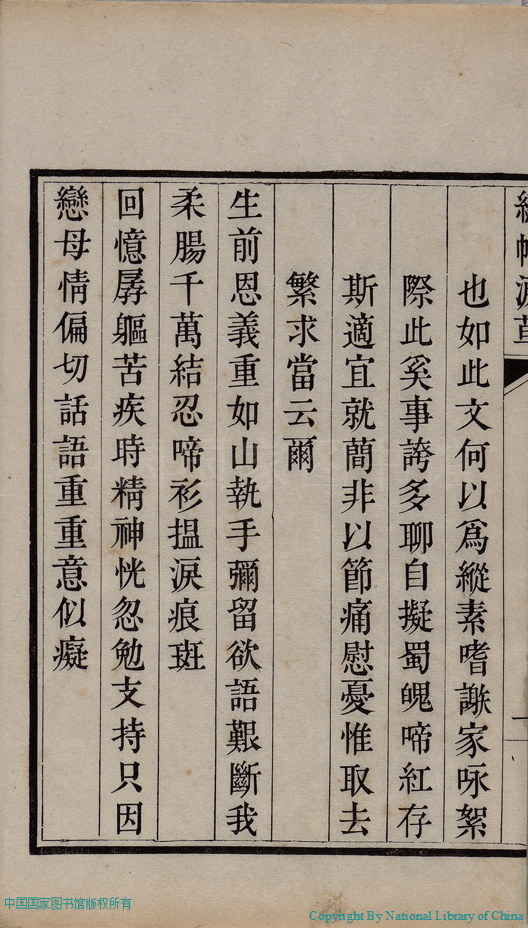 也如此文何以爲縱素嗜謝家咏絮
際此奚事誇多聊自擬蜀魄啼紅存
斯適宜就蕳非以節痛慰憂惟取去
繁求當云爾
生前恩義重如山執手彌留欲語艱斷我
柔腸千萬結忍啼衫揾淚痕斑
回憶孱軀苦疾時精神恍忽勉支持只因
戀母情偏切話語重重意似癡
中国国家图书馆版权所有
Copyright By National Library of China